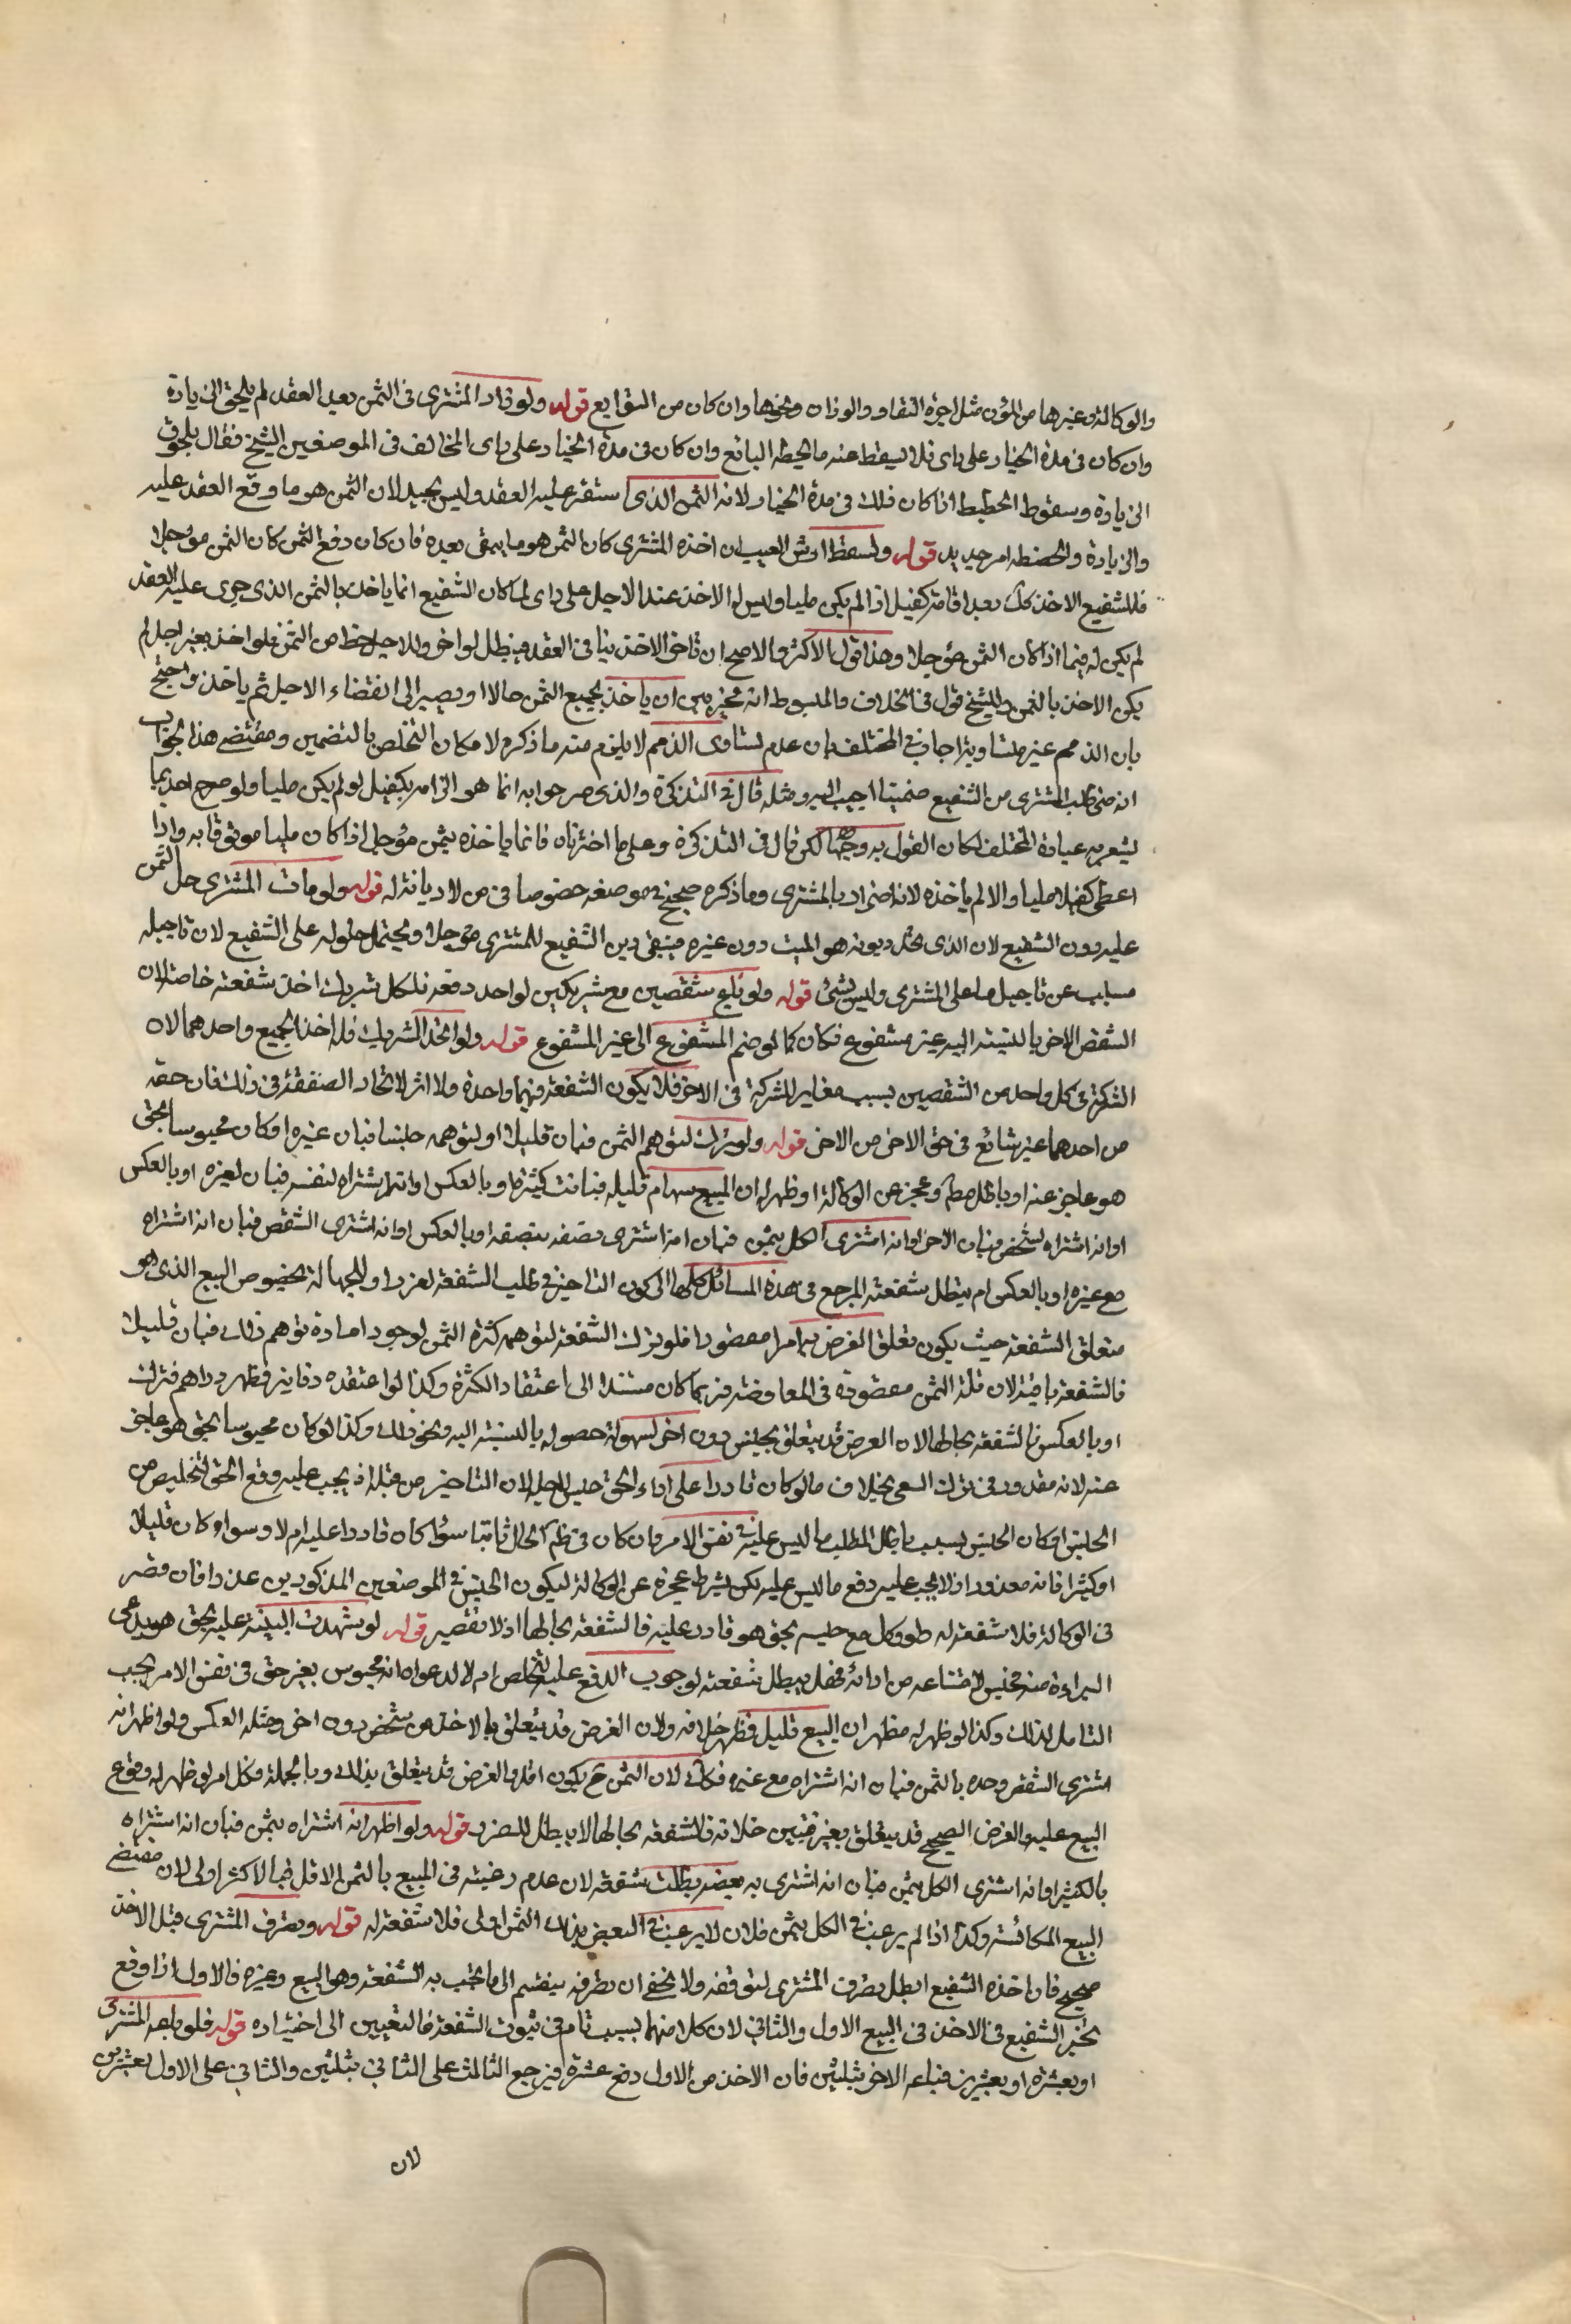 والوكالة وغيرها من المؤن مثل اجرة النقاد والوزان ونحوها وان كان من التوابع قوله ولو زاد المشترى فى الثمن بعد العقد لم يلحق الزيادة
وان كان فى مدة الخيار على راى فلا يسقط عنه ما يحطه البائع وان كان فى مدة الخيار على راى المخالف فى الموضعين الشيخ فقال يلحق
الزيادة وسقوط الحطيط اذا كان ذلك فى مدة الخيار لانه الثمن الذى استقر عليه العقد وليس بجيد لان الثمن هو ما وقع العقد عليه
والزيادة والحطيطه امر جديد قوله ولسقط ارش العيب ان اخذه المشترى كان الثمن هو ما يبقى بعده فان كان دفع الثمن كان الثمن مؤجلا
فللشفيع الاخذ كك بعد اقامة كفيل اذا لم يكن مليا وليس له الاخذ عند الاجل على راى لما كان الشفيع انما ياخذ بالثمن الذى جرى عليه العقد
لم يكن له فيما اذا كان الثمن مؤجلا وهذا قول الاكثر والاصح ان تاخر الاخذ ينافى العقد فيبطل لو اخر وللاجل حظ من الثمن فلو اخذ بغير اجل لم
يكن الاخذ بالثمن وللشيخ قول فى الخلاف والمبسوط انه مخير بين ان ياخذ بجميع الثمن حالا او يصير الى انقضاء الاجل ثم ياخذ واحتج
بان الذمم غير متساوية اجاب فى المختلف بان عدم تساوى الذمم لا يلزم منه ما ذكره لامكان التخلص بالتضمين ومقتضى هذا الجواب
انه متى طلب المشترى من الشفيع ضمينا اجيب اليه ومثله قال فى التذكرة والذى صرحوا به انما هو الزامه بكفيل لو لم يكن مليا ولو صرح احد بما
يشعر به عبارة المختلف لكان القول به وجها لكن قال فى التذكرة وعلى ما اخترناه فانما ياخذه بثمن مؤجل اذا كان مليا موثوقا به واذا
اعطى كفيلا مليا والا لم ياخذه لانه اضرار بالمشترى وما ذكره صحيح فى موضعه خصوصا فى من لا ديانة له قوله ولو مات المشترى حل الثمن
عليه دون الشفيع لان الذى يحل ديونه هو الميت دون غيره فيبقى دين الشفيع للمشترى مؤجلا ويحتمل حلوله على الشفيع لان تاجيله
مسبب عن تاجيل ما على المشترى وليس بشئ قوله ولو بيع شقصين مع شريكين لواحد دفعة فلكل شريك اخذ شفعته خاصة لان
الشقص الاخر بالنسبة اليه غير مشفوع فكان كما لو ضم المشفوع الى غير المشفوع قوله ولو اتحد الشريك فله اخذ الجميع واحدهما لان
الشركة فى كل واحد من الشقصين بسبب مغاير للشركة فى الاخر فلا يكون الشفعة فيهما واحدة ولا اثر لاتحاد الصفقة فى ذلك فان حقه
من احدهما غير شائع فى حق الاخر من الاخر قوله ولو ترك لتوهم الثمن فبان قليلا او لتوهمه جنسا فبان غيره او كان محبوسا بحق
هو عاجز عنه او باطل مطلقا وعجز عن الوكالة او ظهر له ان المبيع سهام قليله فبانت كثيرة او بالعكس او انه اشتراه لنفسه فبان لغيره او بالعكس
او انه اشتراه لشخص فبان الاخر او انه اشترى الكل بثمن فبان انه اشترى نصفه بنصفه او بالعكس او انه اشترى الشقص فبان انه اشتراه
مع غيره او بالعكس لم يبطل شفعته المرجع فى هذه المسائل كلها الى كون التاخير فى طلب الشفعة لعذر او للجهالة بخصوص البيع الذى هو
متعلق الشفعة حيث يكون تعلق الغرض به امرا مقصودا فلو ترك الشفعة لتوهمه كثرة الثمن لوجود امارة توهم ذلك فبان قليلا
فالشفعة باقية لان قلة الثمن مقصودة فى المعاوضة فربما كان مستندا الى اعتقاد الكثرة وكذا لو اعتقده دنانير فظهر دراهم فترك
او بالعكس فالشفعة بحالها لان الغرض قد يتعلق بجنس دون اخر لسهولة حصوله بالنسبة اليه ونحو ذلك وكذا لو كان محبوسا بحق هو عاجز
عنه لانه معذور فى ترك السعى بخلاف ما لو كان قادرا على اداء الحق حبس لاجله لان التاخير من قبله اذ يجب عليه دفع الحق لتخليص من
الحبس او كان الحبس بسبب باطل المطلب ما ليس عليه فى نفس الامر وان كان فى ظاهر الحال ثابتا سواء كان قادرا عليه ام لا وسوا كان قليلا
او كثيرا فانه معذور اذ لا يجب عليه دفع ما ليس عليه لكن بشرط عجزه عن الوكالة ليكون الحبس فى الموضعين المذكورين عذرا فان قصر
فى الوكالة فلا شفعة له ولو وكل مع حبسه بحق هو قادر عليه فالشفعة بحالها اذ لا تقصير قوله لو شهدت البينة عليه بحق هو يدعى
البراءة منه فحبس لامتناعه من ادائه فهل يبطل شفعته لوجوب الدفع عليه للتخلص ام لا لدعواه انه محبوس بغير حق فى نفس الامر يجب
التامل لذلك وكذا لو ظهر له مظهر ان المبيع قليل فظهر خلافه ولان الغرض قد يتعلق بالاخذ من شخص دون اخر ومثله العكس ولو اظهر انه
اشترى الشقص وحده بالثمن فبان انه اشتراه مع غيره فكك لان الثمن ح يكون اقل والغرض قد يتعلق بذلك وبالجملة فكل امر لو ظهر له وقوع
البيع عليه والغرض الصحيح قد يتعلق بغيره فتبين خلافه فالشفعة بحالها لا يبطل للضرر قوله ولو اظهر انه اشتراه بثمن فبان انه اشتراه
بالكثير او انه اشترى الكل بثمن فبان انه اشترى به بعضه بطلت شفعته لان عدم رغبته فى المبيع بالثمن الاقل فبالاكثر اولى لان مقتضى
البيع المكائسة وكذا اذا لم يرغب فى الكل بثمن فلان لا يرغب فى البعض بذلك الثمن اولى فلا شفعة له قوله وتصرف المشترى قبل الاخذ
صحيح فان اخذه الشفيع ابطل تصرف المشترى لتوقفه ولا يخفى ان تصرفه ينقسم الى ما تجب به الشفعة وهو البيع وغيره فالاول اذا وقع
تخير الشفيع فى الاخذ فى البيع الاول والثانى لان كلا منهما سبب تام فى ثبوت الشفعة فالتعيين الى اختياره قوله فلو باعه المشترى
او بعشرة او بعشرين فباعه الاخر بثلثين فان الاخذ من الاول دفع عشرة فيرجع الثالث على الثانى بثلثين والثانى على الاول بعشرين
لان